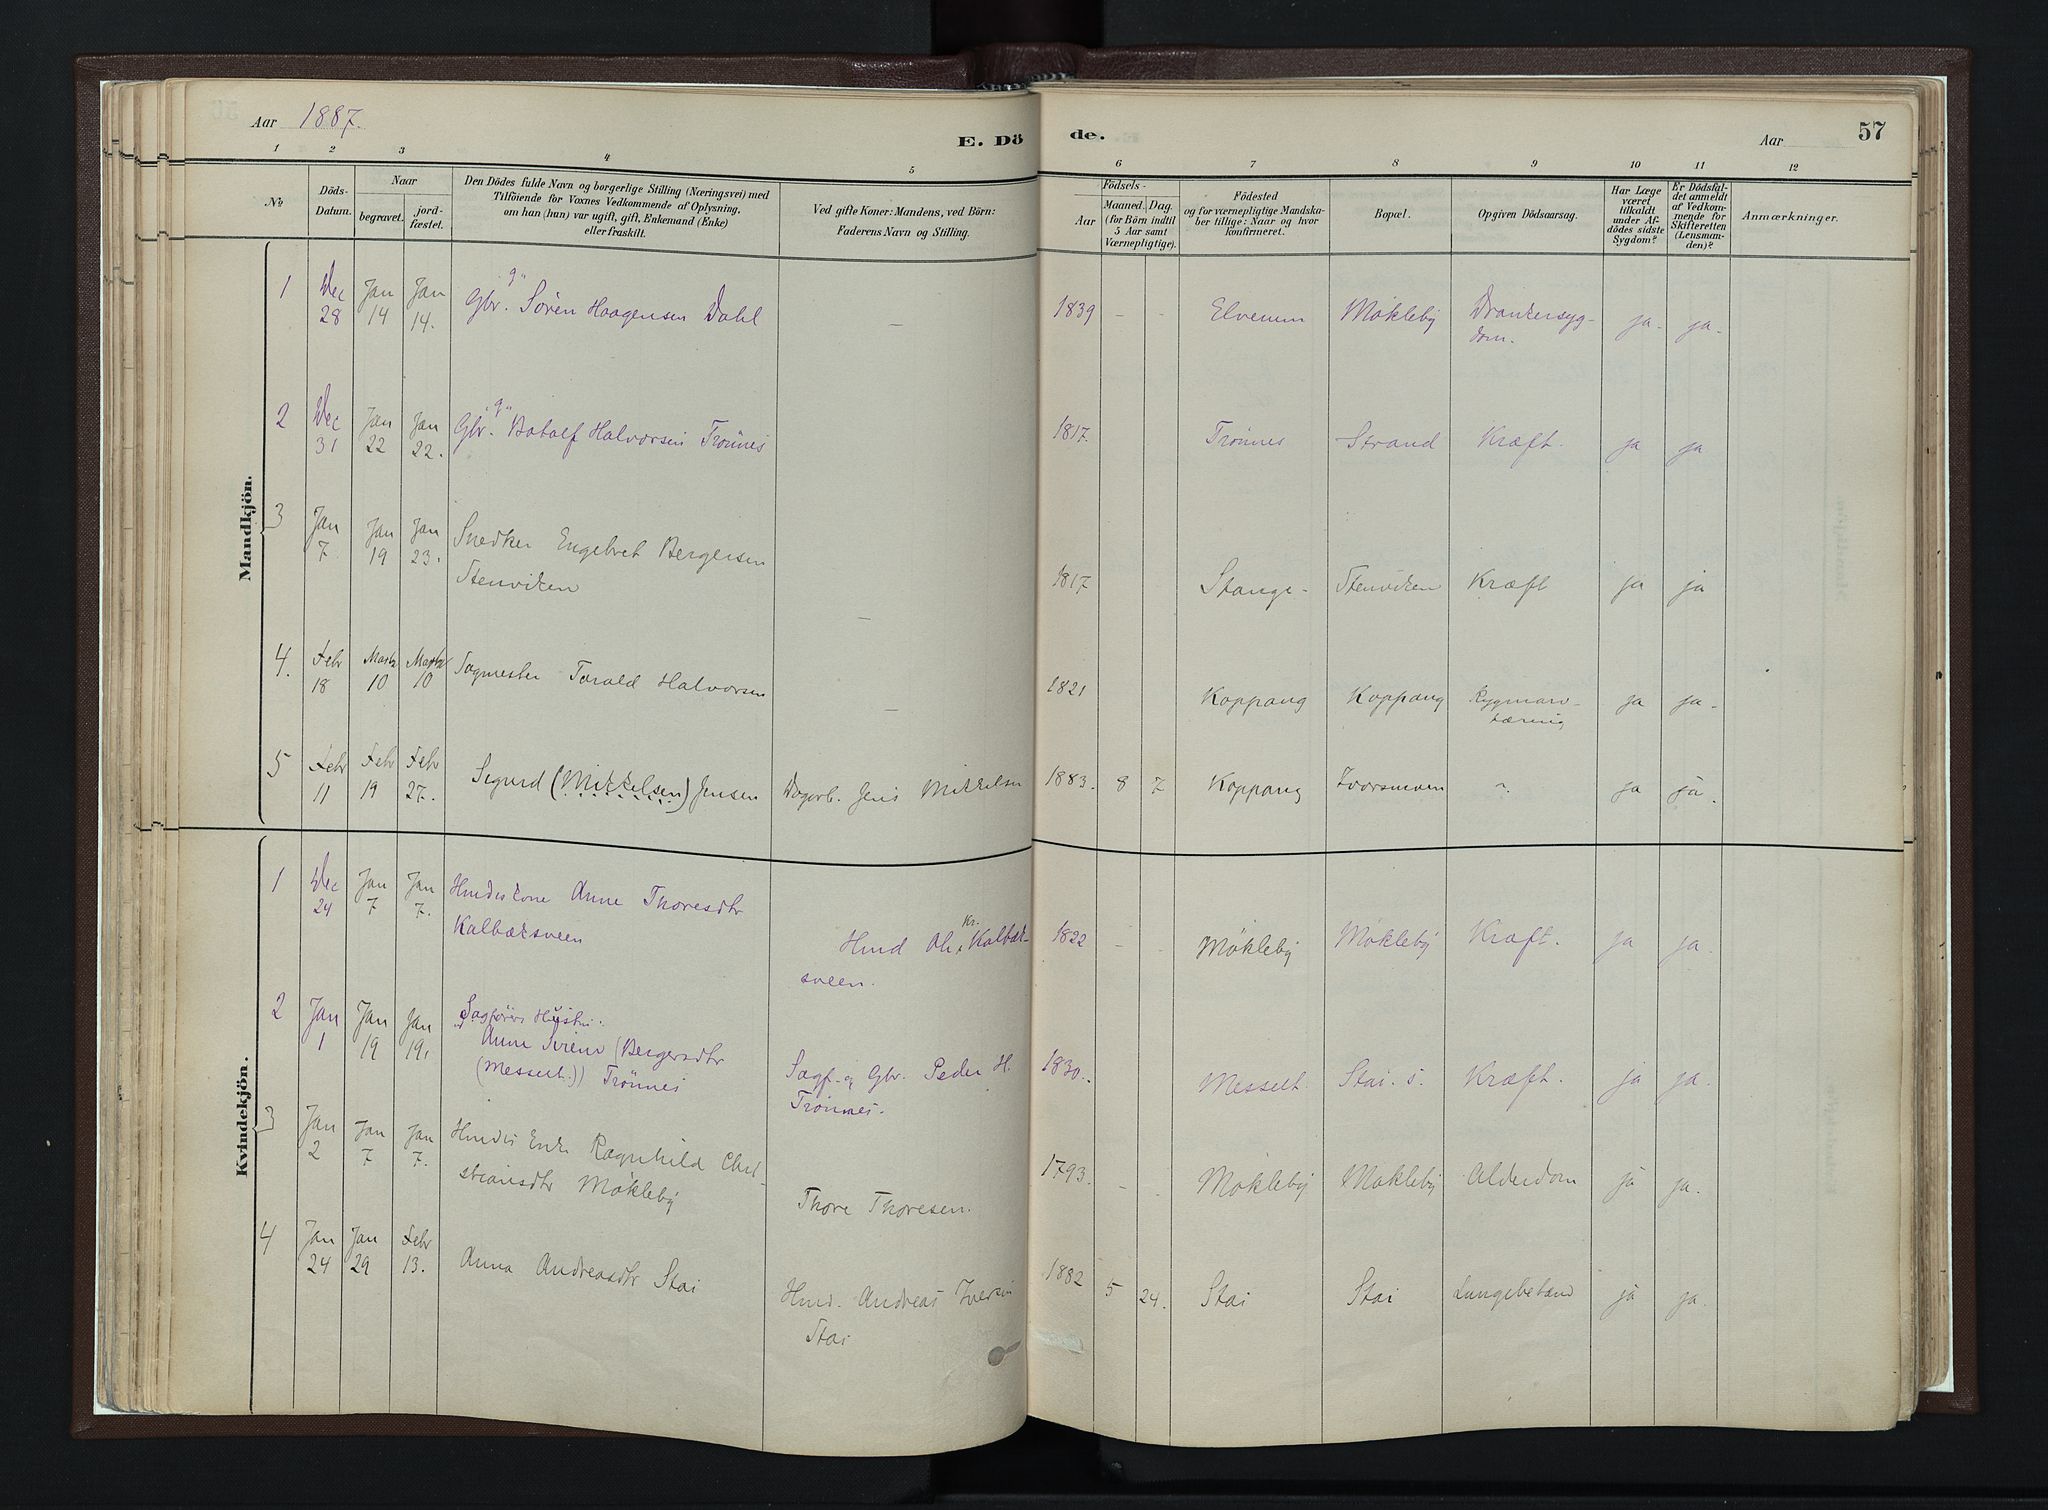 Aar 1887.
E. Döde.
Aar
57
1 2 3 4 5 6 7 8 9 10 11 12
No
Döds-Datum.
Naar
begravet.
jord-fæstet.
Den Dödes fulde Navn og borgerlige Stilling (Næringsvei) med
Tilföiende for Voxnes Vedkommende af Oplysning,
om han (hun) var ugift, gift, Enkemand (Enke)
eller fraskilt.
Ved gifte Koner: Mandens, ved Börn:
Faderens Navn og Stilling.
Födsels-
Aar
Maaned. Dag.
(for Börn indtil
5 Aar samt
Værnepligtige).
Födested
og for værnepligtige Mandska-
ber tillige: Naar og hvor
konfirmeret.
Bopæl.
Opgiven Dödsaarsag.
Har Læge
været
tilkaldt
under Af-
dödes sidste
Sygdom?
Er Dödsfal-
det anmeldt
af Vedkom-
mende for
Skifteretten
(Lensman-
den)?
Anmærkninger.
Mandkjön.
1 Dec 28 Jan 14 Jan 14. Gbr. "g" Sören Haagensen Dahl – 1839 – - Elverum Mökleby Drankersyg-
dom. ja - ja -
2 Dec 31 Jan 22 Jan 22. Gbr. "g" Botolf Halvorsen Trönnes 1817. Trönnes Strand Kræft. ja ja
3 Jan 7 Jan 19 Jan 23. Snedker Engebret Bergersen
Stenviken – 1817 Stange - Stenviken Kræft ja ja
4. Febr 18 Marts 10 Marts 10 Sagmester Torald Halvorsen – 1821 Koppang Koppang Rygmarv-
tæring ja ja -
5 Febr 11 Febr 19 Febr 27. Sigurd (Mikkelsen) Jensen Dagarb. Jens Mikkelsen 1883. 8 7 Koppang Ivarsmoen ~. ja ja.
Kvindekjön.
1 Dec 24 Jan 7 Jan 7. Hmdskone Anne Thoresdtr
Kalbæksveen Hmd Ole Kr. Kalbæk-
sveen. 1822 – - Mökleby Mökleby Kræft. ja ja.
2 Jan 1 Jan 19 Jan 19. Sagförers Hustru.
Anne Sirene (Bergersdtr
(Messelt.)) Trönnes Sagf. og Gbr. Peder H.
Trönnes. 1830.. Messelt. Stai. s. Kræft. ja ja.
3 Jan 2 Jan 7 Jan 7. Hmds Enke Ragnhild Chri-
stiansdtr Mökleby Thore Thoresen. 1793. – - Mökleby Mökleby Alderdom ja ja.
4 Jan 24 Jan 29 Febr 13. Anna Andreasdtr Stai Hmd. Andreas Iversen
Stai 1882 5 24. Stai Stai Lungebetænd ja ja.